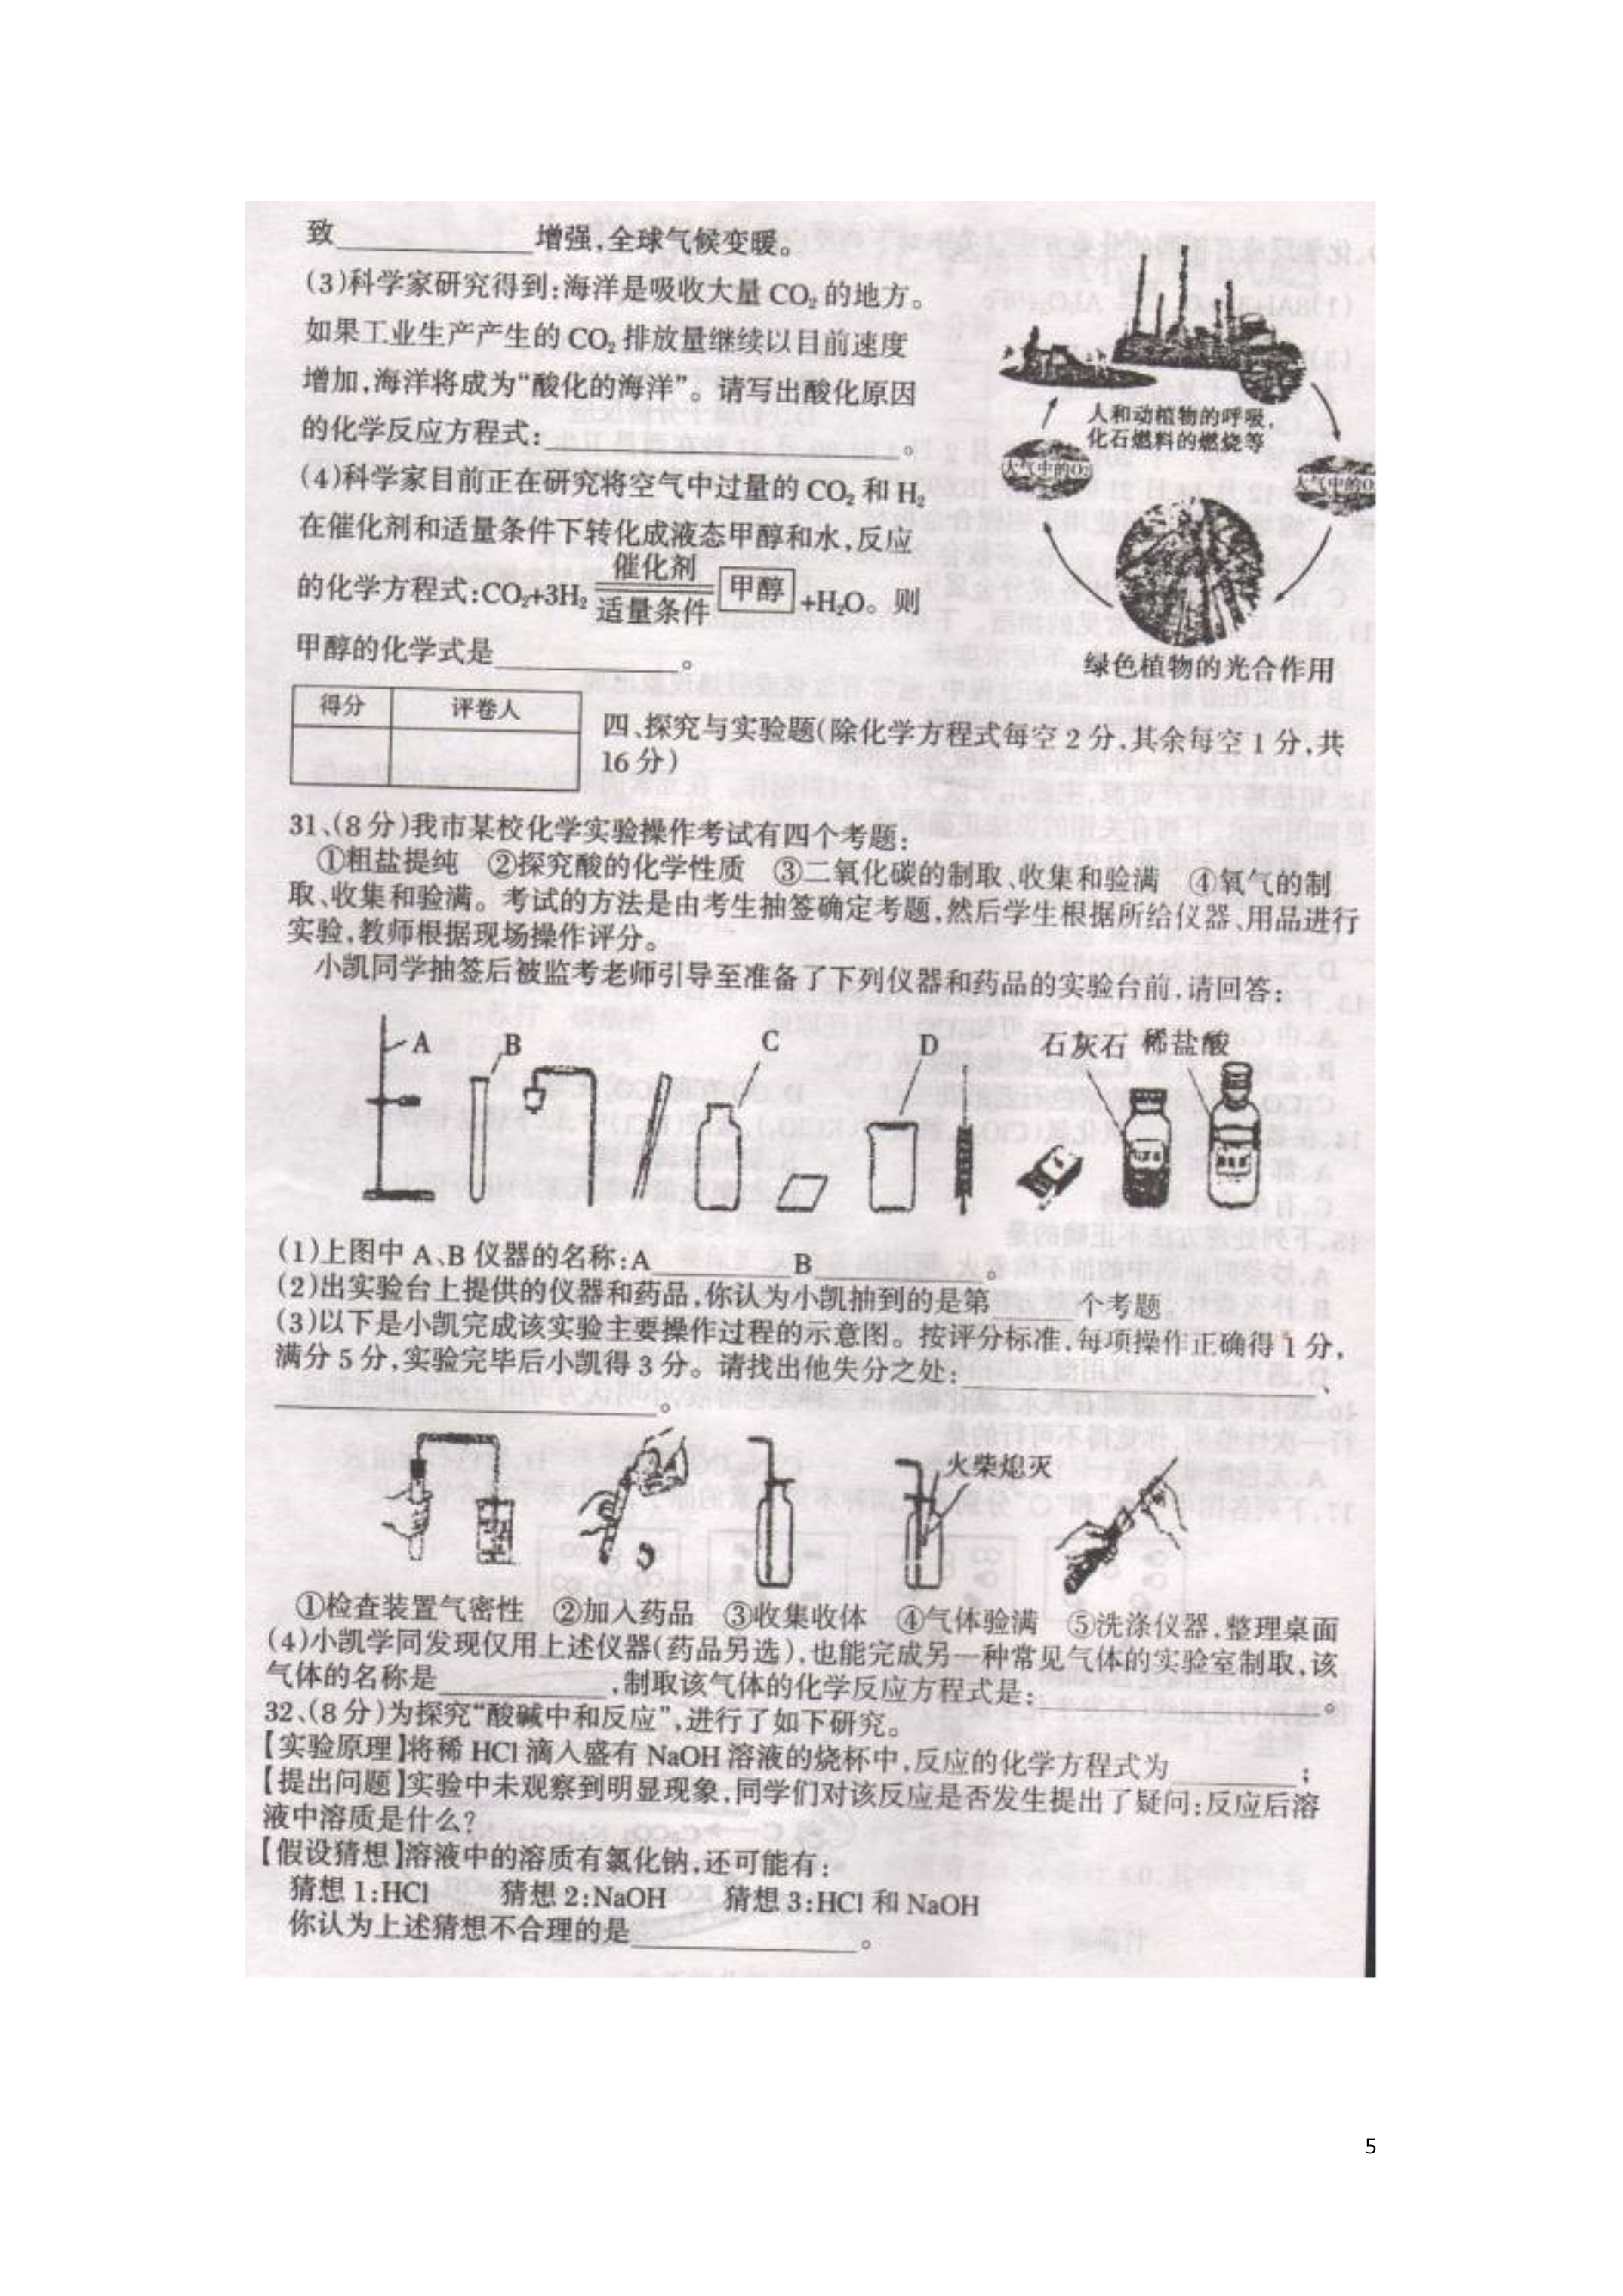 致 增强,全球气候变暖。
(3)科学家研究得到:海洋是吸收大量 CO₂ 的地方。
如果工业生产产生的 CO₂ 排放量继续以目前速度
增加,海洋将成为“酸化的海洋”。请写出酸化原因
的化学反应方程式: 。
(4)科学家目前正在研究将空气中过量的 CO₂ 和 H₂
在催化剂和适量条件下转化成液态甲醇和水,反应
的化学方程式:CO₂+3H₂ 催化剂 适量条件 甲醇 +H₂O。则
甲醇的化学式是 。
人和动植物的呼吸,
化石燃料的燃烧等
大气中的O₂
大气中的
绿色植物的光合作用
得分 评卷人
四、探究与实验题(除化学方程式每空 2 分,其余每空 1 分,共
16 分)
31、(8 分)我市某校化学实验操作考试有四个考题:
①粗盐提纯 ②探究酸的化学性质 ③二氧化碳的制取、收集和验满 ④氧气的制
取、收集和验满。考试的方法是由考生抽签确定考题,然后学生根据所给仪器、用品进行
实验,教师根据现场操作评分。
小凯同学抽签后被监考老师引导至准备了下列仪器和药品的实验台前,请回答:
A B C D 石灰石 稀盐酸
(1)上图中 A、B 仪器的名称:A B 。
(2)出实验台上提供的仪器和药品,你认为小凯抽到的是第 个考题。
(3)以下是小凯完成该实验主要操作过程的示意图。按评分标准,每项操作正确得 1 分,
满分 5 分,实验完毕后小凯得 3 分。请找出他失分之处: 、
。
火柴熄灭
①检查装置气密性 ②加入药品 ③收集收体 ④气体验满 ⑤洗涤仪器,整理桌面
(4)小凯学同发现仅用上述仪器(药品另选),也能完成另一种常见气体的实验室制取,该
气体的名称是 ,制取该气体的化学反应方程式是: 。
32、(8 分)为探究“酸碱中和反应”,进行了如下研究。
【实验原理】将稀 HCl 滴入盛有 NaOH 溶液的烧杯中,反应的化学方程式为 ;
【提出问题】实验中未观察到明显现象,同学们对该反应是否发生提出了疑问:反应后溶
液中溶质是什么?
【假设猜想】溶液中的溶质有氯化钠,还可能有:
猜想 1:HCl 猜想 2:NaOH 猜想 3:HCl 和 NaOH
你认为上述猜想不合理的是 。
5